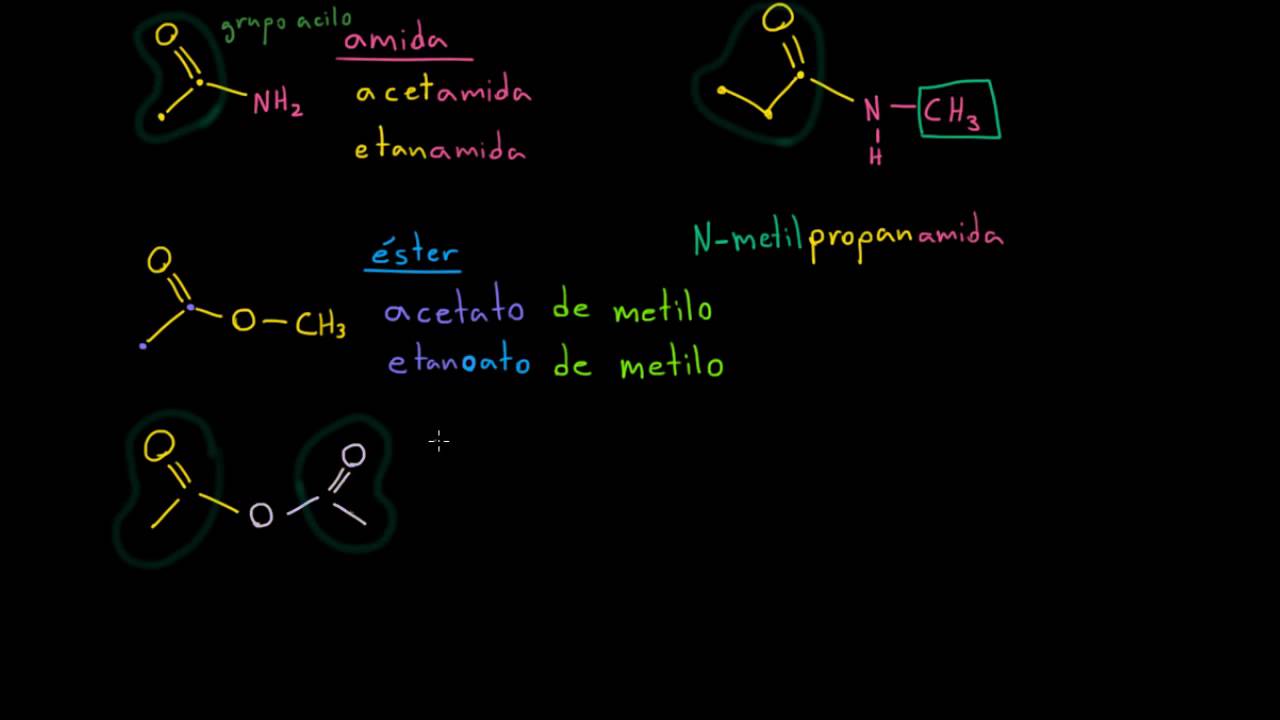 grupo acilo
amida
O
NH2
acetamida
etanamida
O
N — CH3
H
N-metilpropanamida
éster
O
O — CH3
acetato de metilo
etanoato de metilo
O
O
O